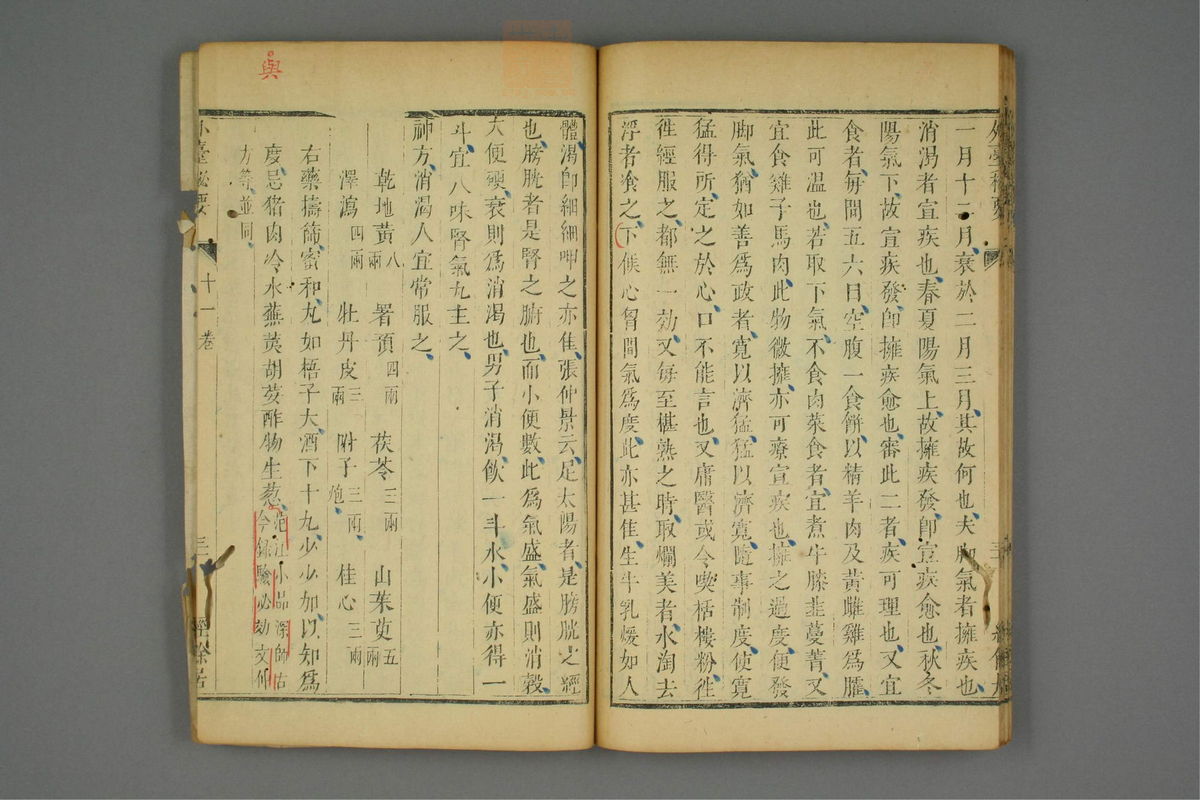 一月十二月衰於二月三月其故何也夫脚氣者擁疾也
消渴者宣疾也春夏陽氣上故擁疾發卽宣疾愈也秋冬
陽氣下故宣疾發卽擁疾愈也審此二者疾可理也又宜
食者每間五六日空腹一食餅以精羊肉及黃雌雞爲臛
此可溫也若取下氣不食肉菜食者宜煮牛膝韭蔓菁又
宜食雞子馬肉此物微擁亦可療宣疾也擁之過度便發
脚氣猶如善爲政者寬以濟猛猛以濟寬隨事制度使寬
猛得所定之於心口不能言也又庸醫或令喫栝樓粉往
往經服之都無一効又每至椹熟之時取爛美者水淘去
浮者飡之下候心胷間氣爲度此亦甚佳生牛乳煖如人
體渴卽細細呷之亦佳張仲景云足太陽者是膀胱之經
也膀胱者是腎之腑也而小便數此爲氣盛氣盛則消穀
大便硬衰則爲消渴也男子消渴飲一斗水小便亦得一
斗宜八味腎氣丸主之
神方消渴人宜常服之
乾地黃八兩 署預四兩 茯苓三兩 山茱萸五兩
澤瀉四兩 牡丹皮三兩 附子三兩炮 桂心三兩
右藥擣篩蜜和丸如梧子大酒下十丸少少加以知爲
度忌猪肉冷水蕪荑胡荽酢物生葱范汪小品深師古
今錄驗必効文仲
方等並同
外臺祕要 十一卷 三 經餘居
與